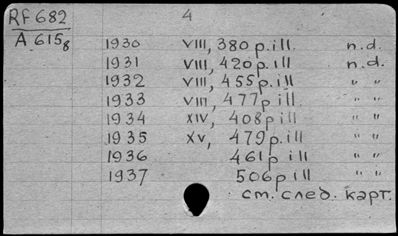 RF 682 4
A 615₈
1930 VIII, 380 p. ill. n.d.
1931 VIII, 420p. ill. n.d.
1932 VIII, 455p. ill " "
1933 VIII, 477p ill. " "
1934 XIV, 408p ill " "
1935 XV, 479p. ill " "
1936 461p ill " "
1937 506p ill " "
см. след. карт.